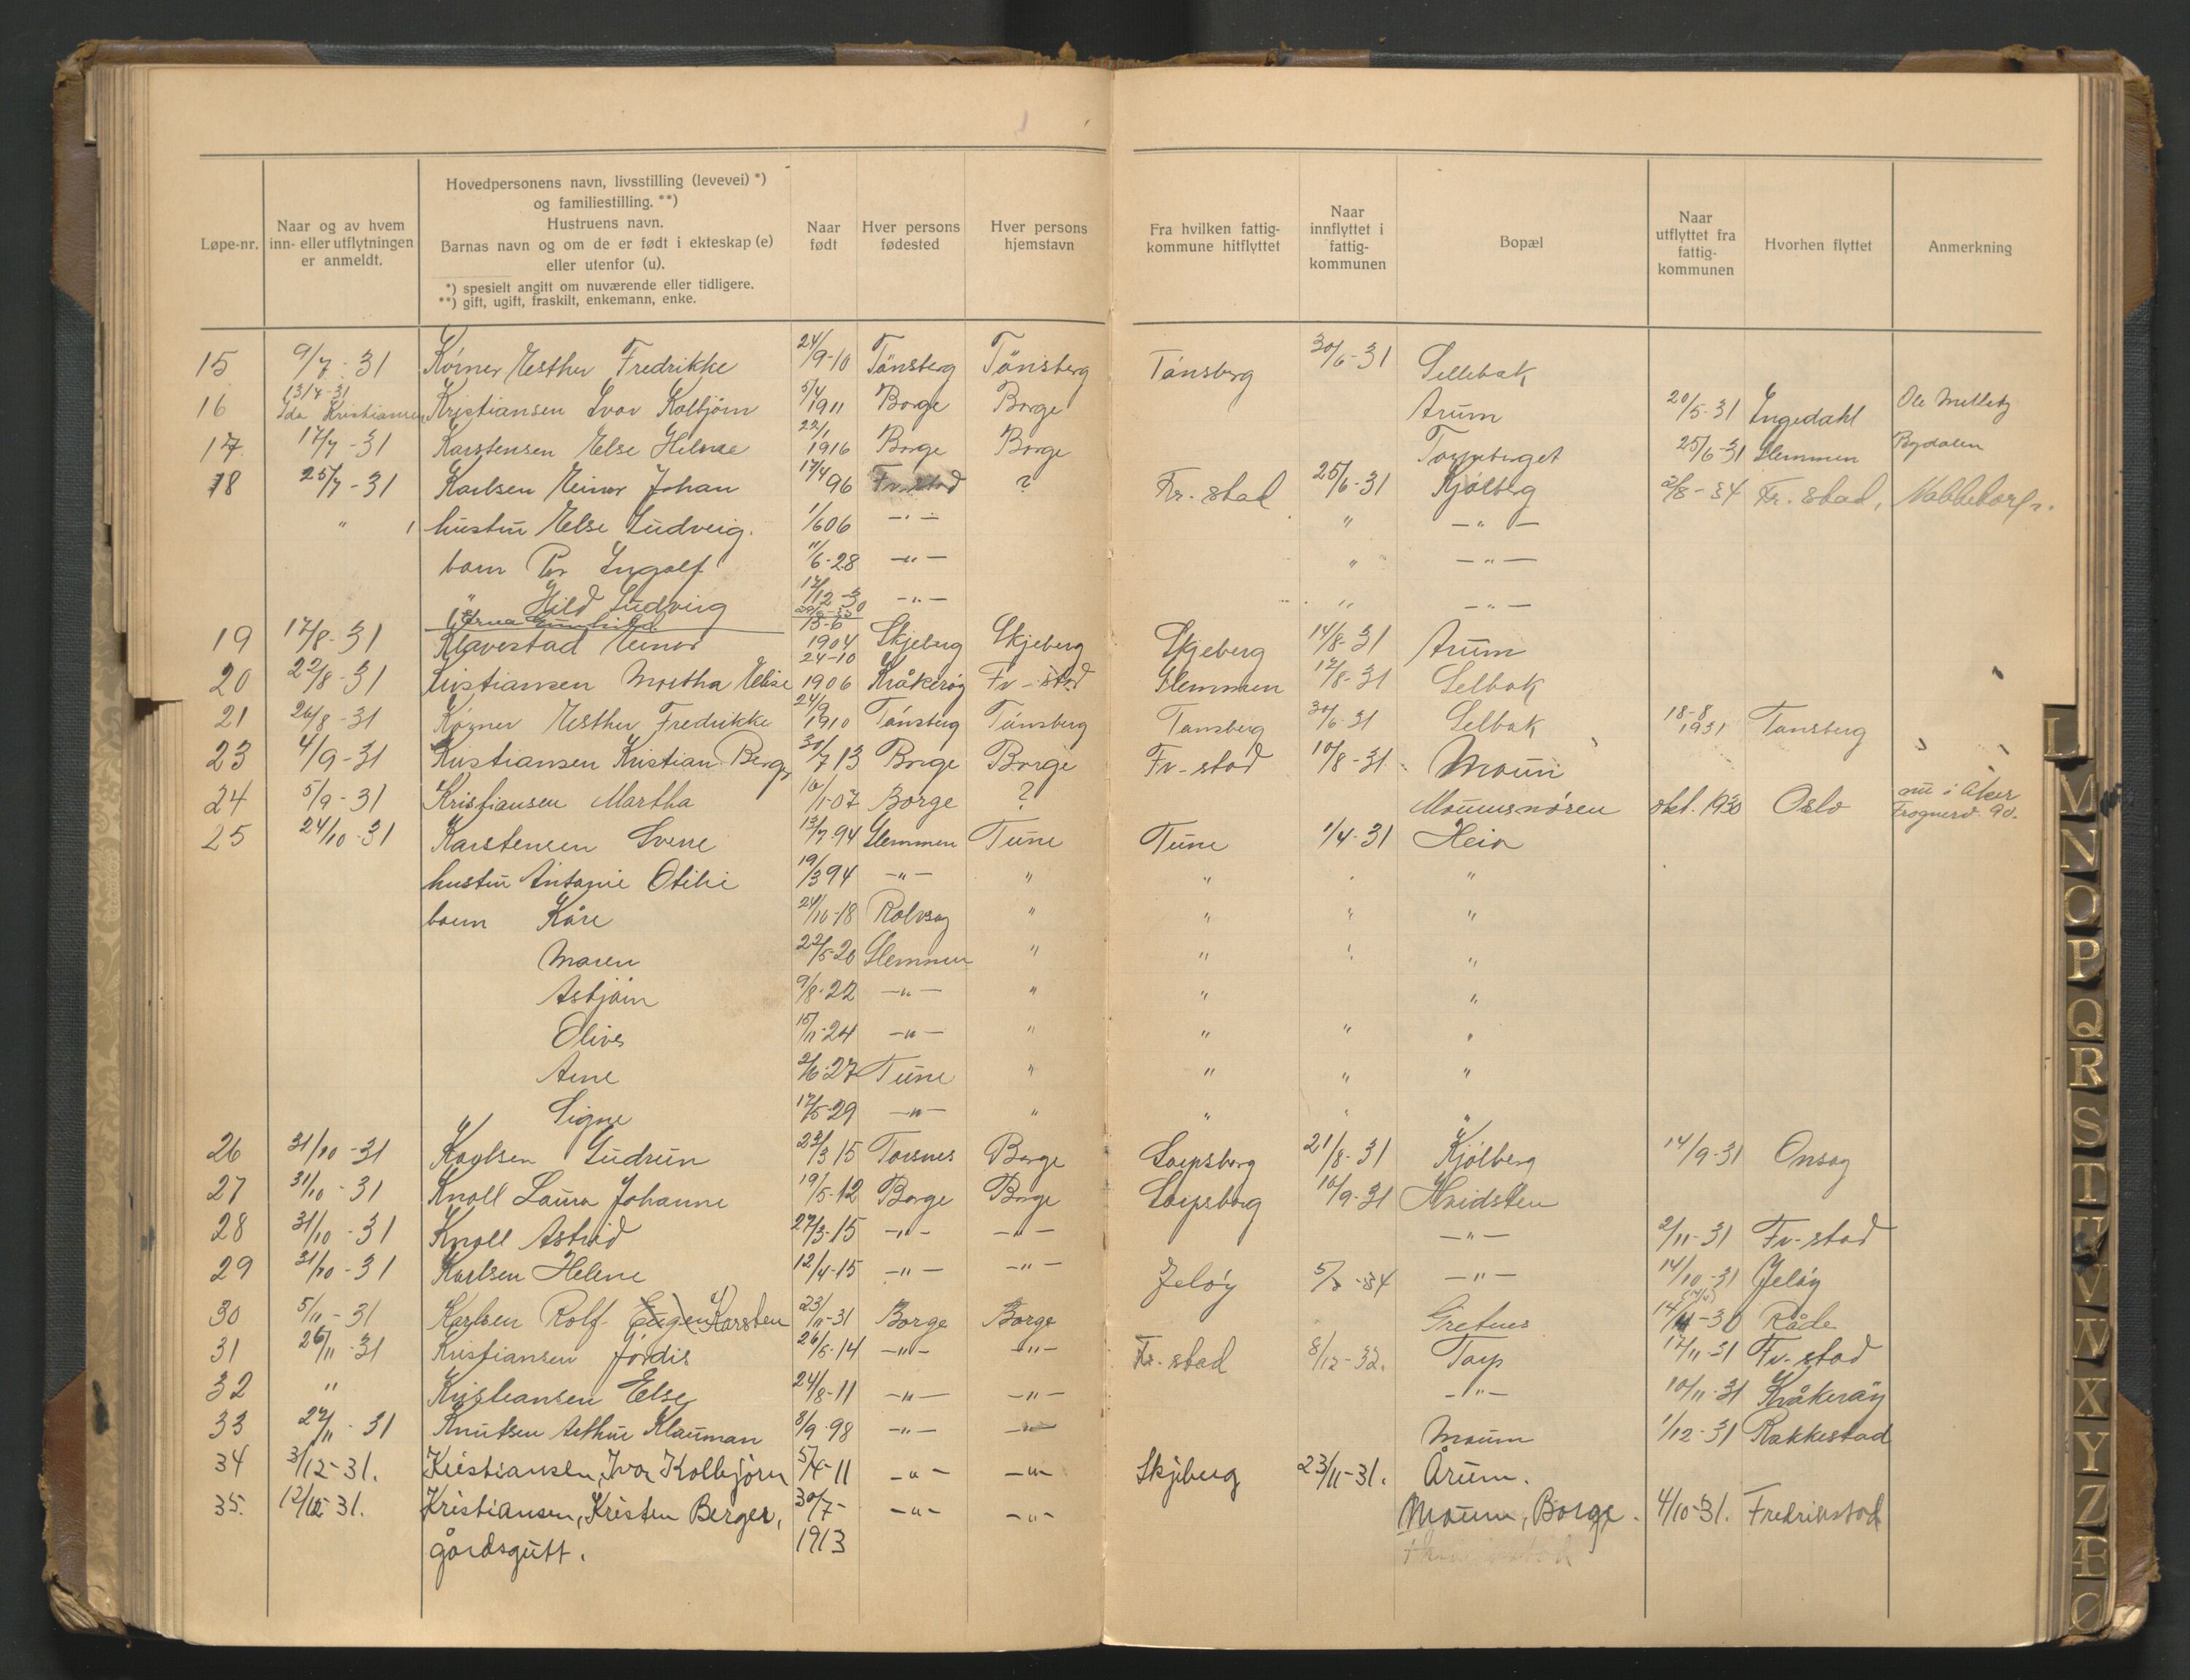 Løpe-nr.
Naar og av hvem
inn- eller utflytningen
er anmeldt.
Hovedpersonens navn, livsstilling (levevei) *)
og familiestilling. **)
Hustruens navn.
Barnas navn og om de er født i ekteskap (e)
eller utenfor (u).
*) spesielt angitt om nuværende eller tidligere.
**) gift, ugift, fraskilt, enkemann, enke.
Naar
født
Hver persons
fødested
Hver persons
hjemstavn
Fra hvilken fattig-
kommune hitflyttet
Naar
innflyttet i
fattig-
kommunen
Bopæl
Naar
utflyttet fra
fattig-
kommunen
Hvorhen flyttet
Anmerkning
15 9/7-31 Kørner Esther Fredrikke 24/9-10 Tønsberg Tønsberg Tønsberg 30/6-31 Sellebak
16 13/7-31 Ida Kristiansen Kristiansen Ivar Kolbjørn 5/4 1911 Borge Borge Årum 20/5-31 Ingedahl Ole Melleby
17 17/7-31 Karstensen Else Helene 22/1 1916 Borge Borge Torpeberget 25/6-31 Glemmen Bydalen
18 25/7-31 Karlsen Einar Johan 17/4 96 Fr.stad ? Fr. stad 25/6-31 Kjølberg 2/8-34 Fr. stad, Nabbetorp.
" hustru Else Ludveig. 1/6 06 -"- " -"-
barn Per Ingolf 11/6-28 -"- " -"-
" Hild Ludveig 17/12-30 -"- " -"-
19 17/8-31 Klavestad Einar 13-6 1904 Skjeberg Skjeberg Skjeberg 14/8-31 Årum
20 22/8-31 Kristiansen Martha Elise 24-10 1906 Kråkerøy Fr-stad Glemmen 17/8-31 Selbak
21 26/8-31 Kørner Esther Fredrikke 24/9 1910 Tønsberg Tønsberg Tønsberg 30/6-31 Selbak 18-8 1931 Tønsberg
23 4/9-31 Kristiansen Kristian Berger 30/7 13 Borge Borge Fr-stad 10/8-31 Moum
24 5/9-31 Kristiansen Martha 10/1-07 Borge ? Moumsmøren okt. 1930 Oslo nu i Aker
Frognerv. 9d.
25 24/10-31 Karstensen Sverre 13/7-94 Glemmen Tune Tune 1/4-31 Heia
hustru Antonie Otilie 19/3 94 -"- " " "
barn Kåre 24/10-18 Rolvsøy " " " "
Maren 22/5-20 Glemmen " " " "
Asbjørn 9/8-22 -"- " " "
Oliver 15/11-24 -"- " " " "
Arne 2/6-27 Tune " " " "
Signe 17/5-29 -"- " " " "
26 31/10-31 Karlsen Gudrun 23/3 15 Torsnes Borge Sarpsborg 21/8-31 Kjølberg 14/9-31 Onsøy
27 31/10-31 Knoll Laura Johanne 19/5-12 Borge Borge Sarpsborg 10/9-31 Hvidsten
28 31/10-31 Knoll Astrid 27/3-15 -"- -"- -"- 2/11-31 Fr-stad
29 31/10-31 Karlsen Helene 12/4-15 -"- -"- Jeløy 5/3-34 -"- 14/10-31 Jeløy
30 5/11-31 Karlsen Rolf Eugen Karsten 23/11-31 Borge Borge Gretnes 14/11-30 Råde
31 26/11-31 Kristiansen Jordis 26/5-14 -"- -"- Fr. stad 8/12-32. Torp 17/11-31 Fr-stad
32 " Kristiansen Else 24/8-11 -"- -"- -"- 10/11-31 Kråkerøy
33 27/11-31 Knutsen Arthur Klauman 8/9-98 -"- -"- Moum 1/12-31 Rakkestad
34 3/12-31. Kristiansen, Ivar Kolbjørn 5/4-11 -"- -"- Skjeberg 23/11-31. Årum.
35. 12/12-31. Kristiansen, Kristen Berger, 30/7- -"- -"- Moum, Borge. 4/10-31. Fredrikstad
gårdsgutt. 1913
L
M
N
O
P
Q
R
S
T
U
V
W
X
Y
Z
Æ
Ø